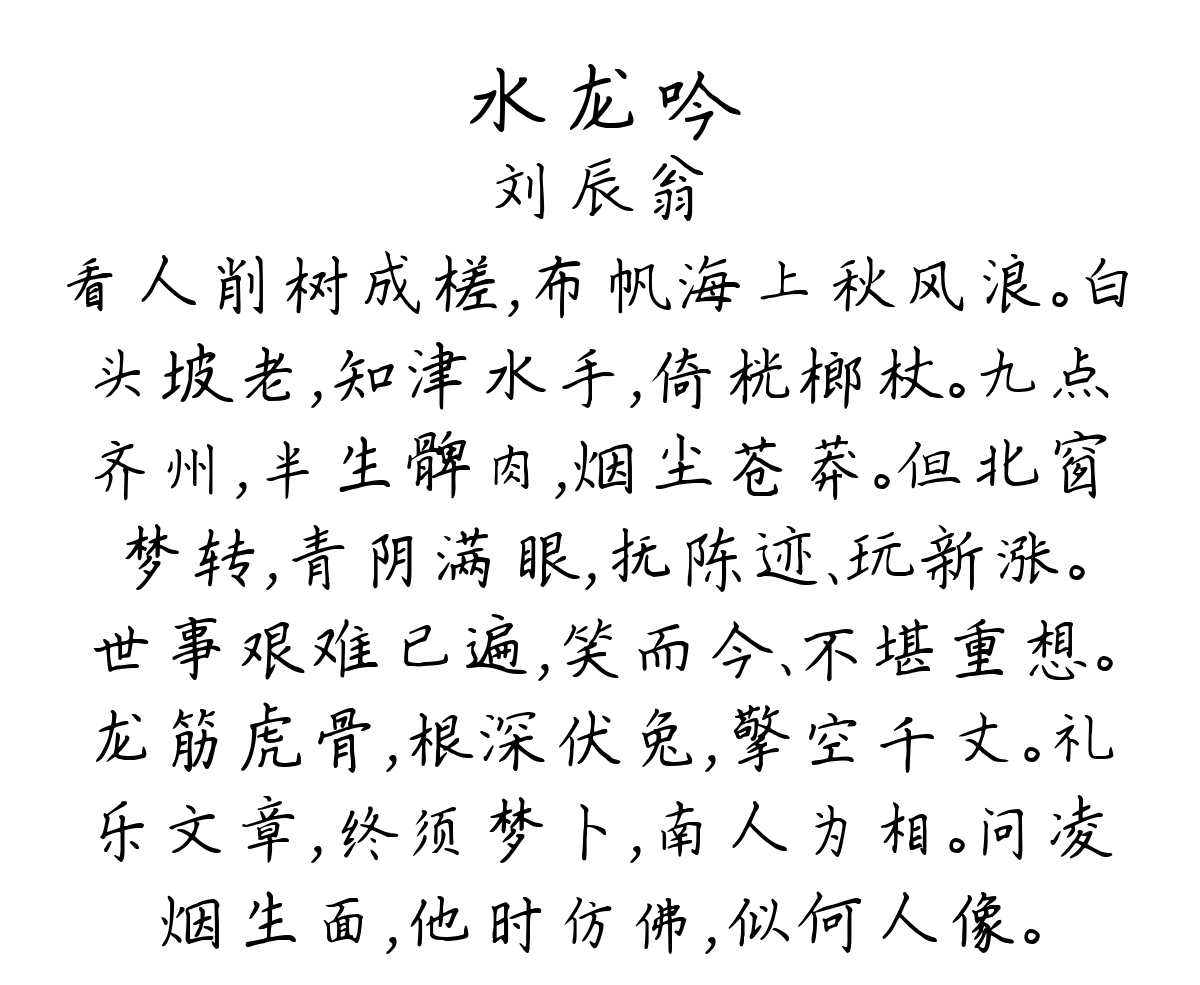 水龙吟
刘辰翁
看人削树成槎,布帆海上秋风浪。白
头坡老,知津水手,倚桄榔杖。九点
齐州,半生髀肉,烟尘苍莽。但北窗
梦转,青阴满眼,抚陈迹、玩新涨。
世事艰难已遍,笑而今、不堪重想。
龙筋虎骨,根深伏兔,擎空千丈。礼
乐文章,终须梦卜,南人为相。问凌
烟生面,他时仿佛,似何人像。